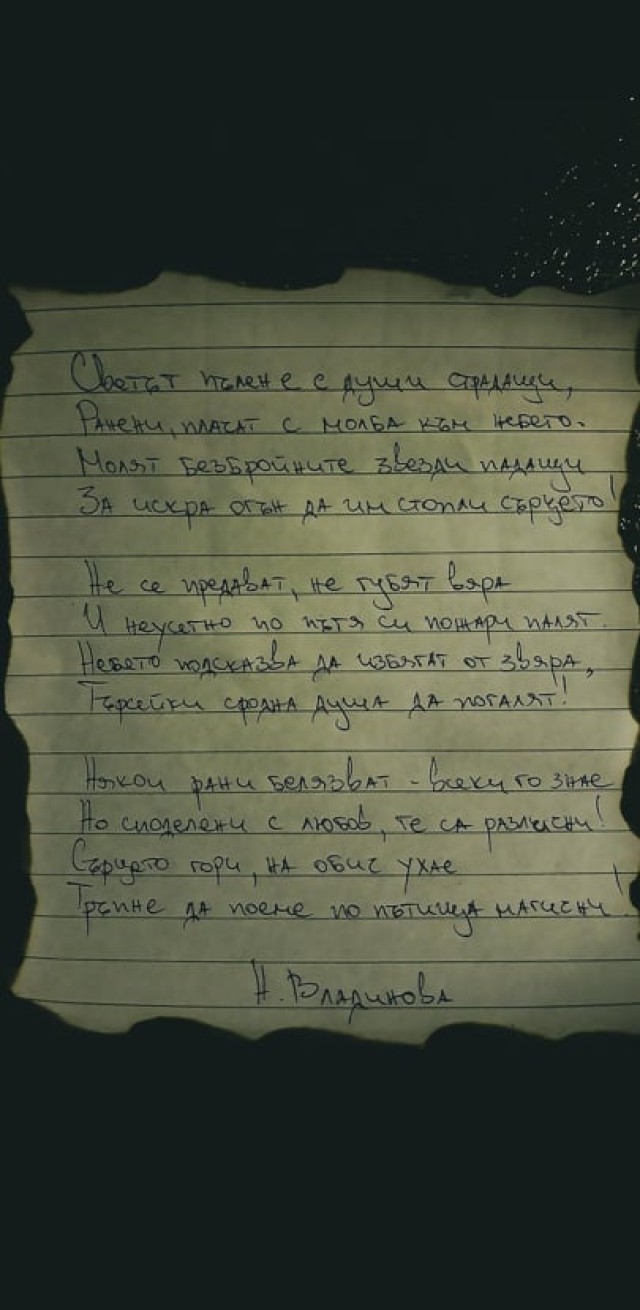 Светът пълен е с души страдащи,
Ранени, плачат с молба към небето.
Молят безбройните звезди падащи
За искра огън да им стопли сърцето!
Не се предават, не губят вяра
И неусетно по пътя си пожари палят.
Небето подсказва да избягат от звяра,
Търсейки сродна душа да погалят!
Някои рани белязват - всеки го знае
Но споделени с любов, те са различни!
Сърцето гори, на обич ухае
Тръпне да поеме по пътища магични!
Н. Владинова